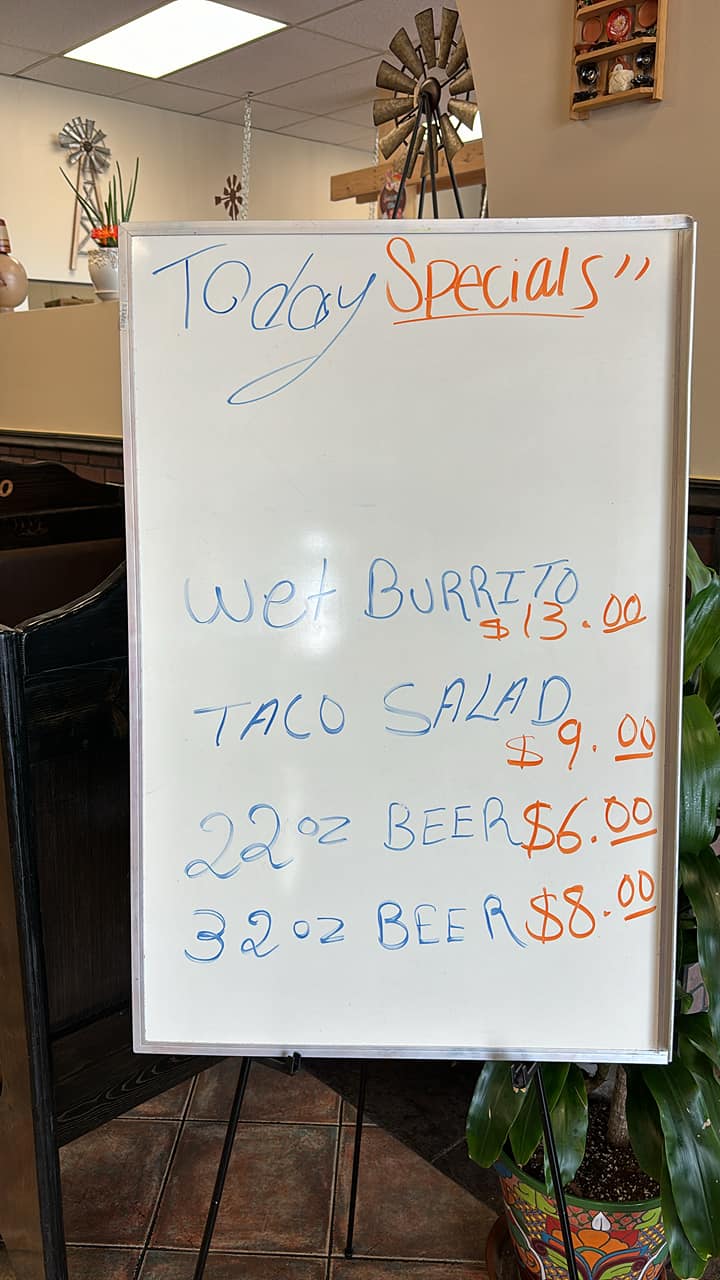 Today Specials"
Wet BURRITO
$13.00
TACO SALAD
$9.00
22oz BEER $6.00
32oz BEER $8.00